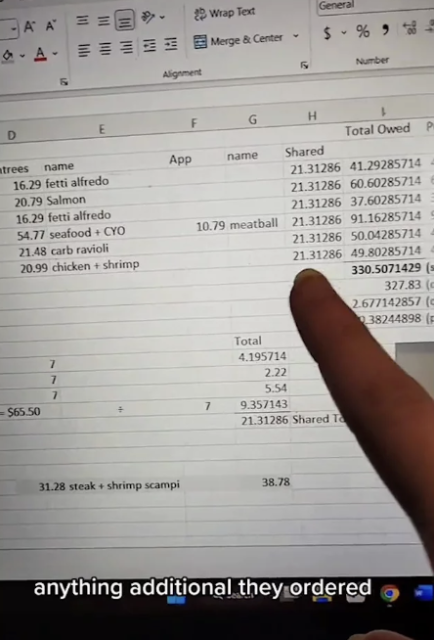 A^ A˅
Wrap Text
General
Merge & Center
$ % ,
Alignment
Number
D E F G H I
Total Owed
trees name App name Shared
16.29 fetti alfredo 21.31286 41.29285714
20.79 Salmon 21.31286 60.60285714
16.29 fetti alfredo 21.31286 37.60285714
54.77 seafood + CYO 10.79 meatball 21.31286 91.16285714
21.48 carb ravioli 21.31286 50.04285714
20.99 chicken + shrimp 21.31286 49.80285714
330.5071429
327.83
2.677142857
0.38244898
Total
7 4.195714
7 2.22
7 5.54
= $65.50 ÷ 7 9.357143
21.31286 Shared To
31.28 steak + shrimp scampi 38.78
anything additional they ordered